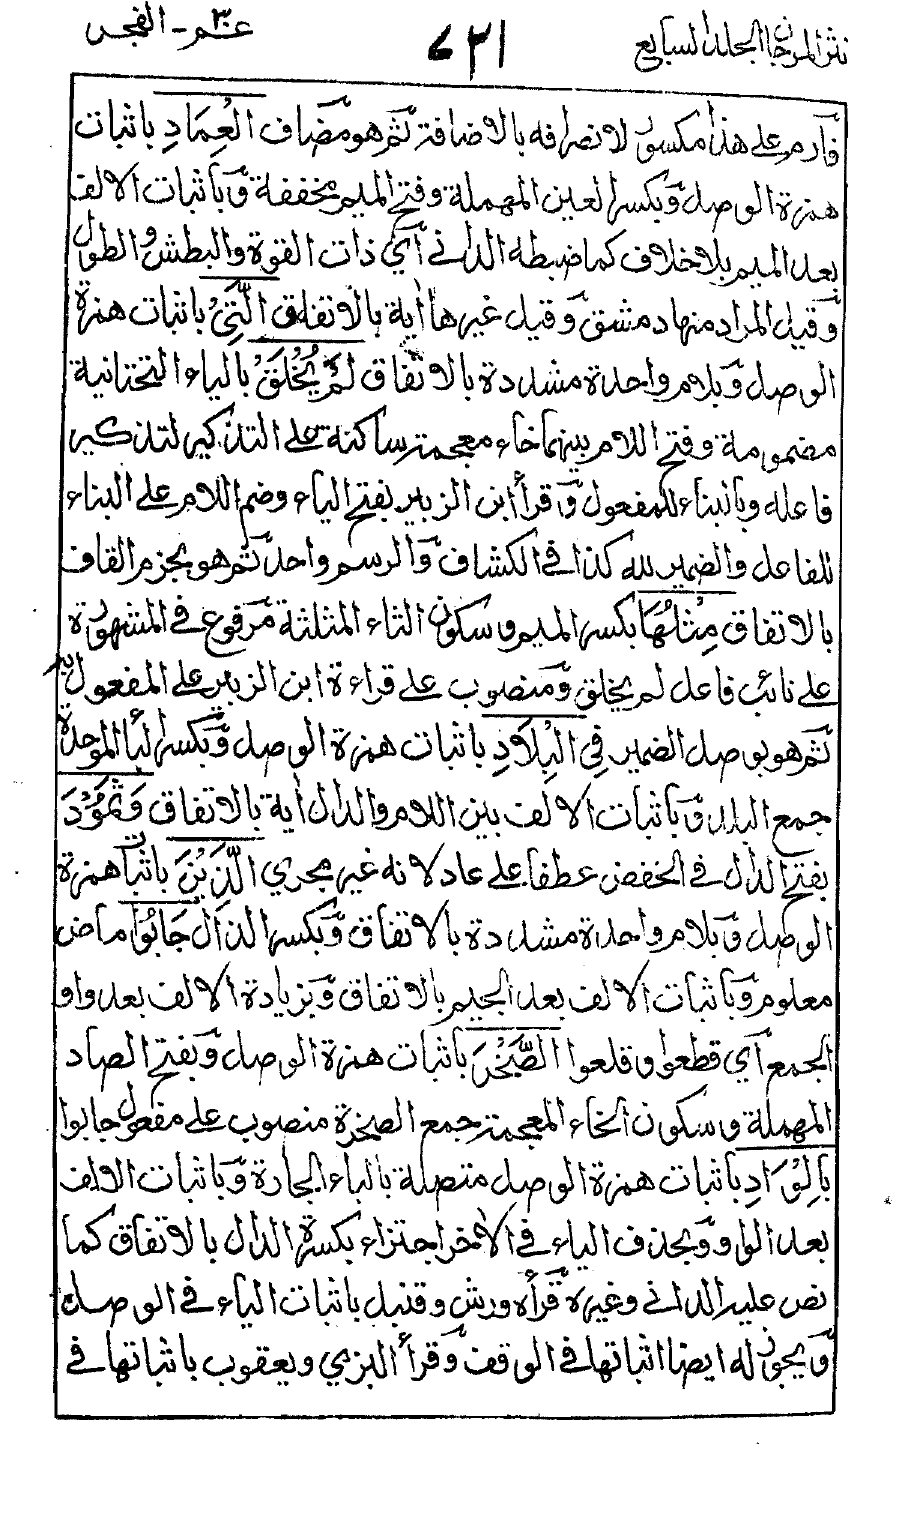 نثر المرجان المجلد السابع ٧٣١ عم ٣٠ - الفجر
فآرم على هذا مكسور لانصرافه بالاضافة ثم هو مضاف الْعِمَادِ باثبات
همزة الوصل وبكسر العين المهملة وفتح الميم مخففة وباثبات الالف
بعد الميم بلاخلاف كما ضبطه الدانى أي ذات القوة والبطش والطول
وقيل المراد منها دمشق وقيل غيرها اٰية بالاتفاق الَّتِيْ باثبات همزة
الوصل وبلام واحدة مشددة بالاتفاق لَمْ يُخْلَقْ بالياء التحتانية
مضمومة وفتح اللام بينهما خاء معجمة ساكنة على التذكير لتذكير
فاعله وبالبناء للمفعول وقرأ ابن الزبير بفتح الياء وضم اللام على البناء
للفاعل والضمير لله كذا فى الكشاف والرسم واحد ثم هو بجزم القاف
بالاتفاق مِثْلُهَا بكسر الميم وسكون الثاء المثلثة مرفوع فى المشهورة
على نائب فاعل لم يخلق ومنصوب على قراءة ابن الزبير على المفعولية
ثم هو بوصل الضمير فِي الْبِلَادِ باثبات همزة الوصل وبكسر الباء الموحدة
جمع البلد وباثبات الالف بين اللام والدال اٰية بالاتفاق وَثَمُوْدَ
بفتح الدال فى الخفض عطفا على عاد لانه غير مجرى الَّذِيْنَ باثبات همزة
الوصل وبلام واحدة مشددة بالاتفاق وبكسر الذال جَابُوْا ماض
معلوم وباثبات الالف بعد الجيم بالاتفاق وبزيادة الالف بعد واو
الجمع أي قطعوا وقلعوا الصَّخْرَ باثبات همزة الوصل وبفتح الصاد
المهملة وسكون الخاء المعجمة جمع الصخرة منصوب على مفعول جابوا
بِالْوَادِ باثبات همزة الوصل متصلة بالباء الجارة وباثبات الالف
بعد الواو وبحذف الياء فى الاٰخر اجتزاء بكسرة الدال بالاتفاق كما
نص عليه الدانى وغيره قرأه ورش وقنبل باثبات الياء فى الوصل
ويجوز له ايضا اثباتها فى الوقف وقرأ البزي ويعقوب باثباتها فى